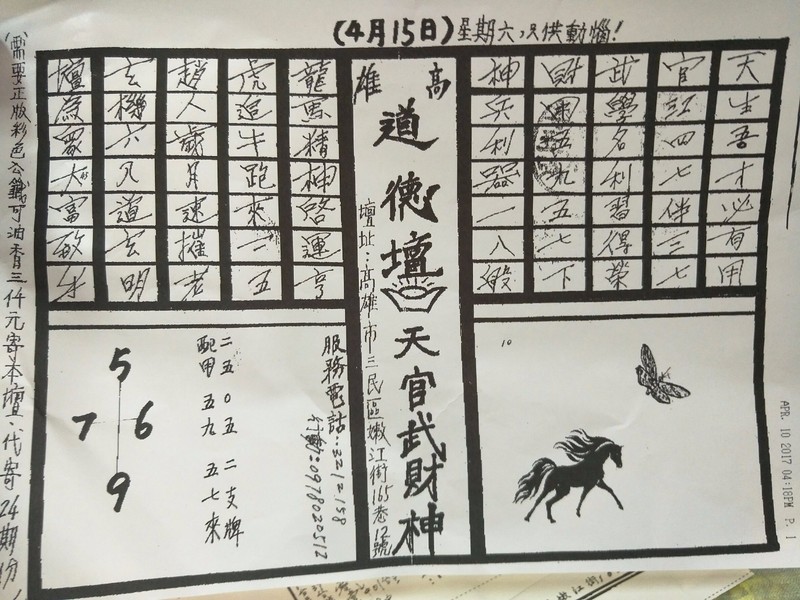 (4月15日)星期六,只供動惱!
天生吾才必有用
官四七伴三七
武學名利習得榮
財五九五七下
神兵利器一八
高雄
道德壇 天官武財神
壇址:高雄市三民區嫩江街165巷12號
龍馬精神啓運亨
虎追牛跑來一五
趙人歲月速摧老
玄機六凡道玄明
壇為眾大富
10
服務電話:3212158
行動:0978020512
二五0五二支牌
配甲五九五七來
5
7 6
9
(需要正版彩色公籤可油香三仟元寄本壇.代寄24期份
APR. 10 2017 04:18PM P. 1